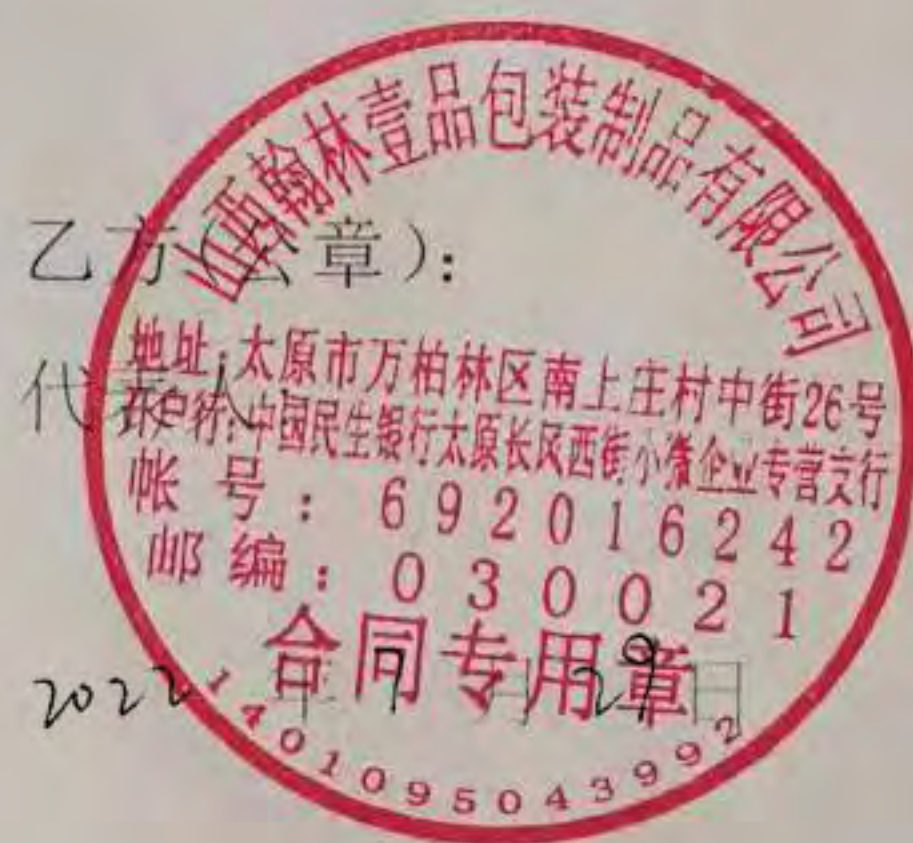 山西翰林壹品包装制品有限公司
乙方(公章):
地址:太原市万柏林区南上庄村中街26号
代表人:
开户行:中国民生银行太原长风西街小微企业专营支行
帐号:692016242
邮编:030021
合同专用章
2022年7月29日
1401095043992